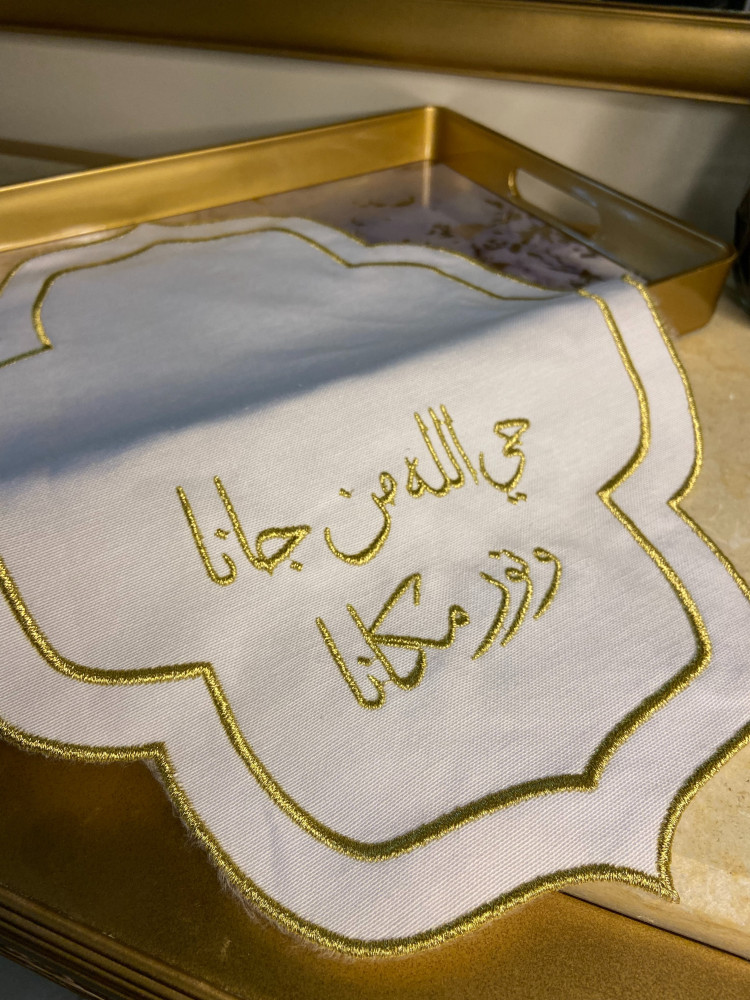 حي الله من جانا
ونور مكانا